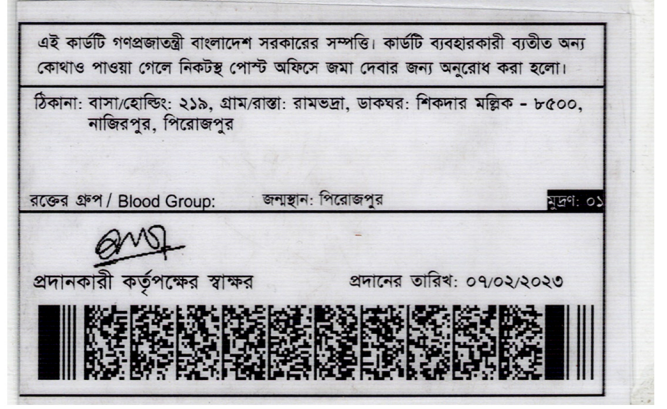 এই কার্ডটি গণপ্রজাতন্ত্রী বাংলাদেশ সরকারের সম্পত্তি। কার্ডটি ব্যবহারকারী ব্যতীত অন্য
কোথাও পাওয়া গেলে নিকটস্থ পোস্ট অফিসে জমা দেবার জন্য অনুরোধ করা হলো।
ঠিকানা: বাসা/হোল্ডিং: ২১৯, গ্রাম/রাস্তা: রামভদ্রা, ডাকঘর: শিকদার মল্লিক - ৮৫০০,
নাজিরপুর, পিরোজপুর
রক্তের গ্রুপ / Blood Group: জন্মস্থান: পিরোজপুর মুদ্রণ: ০১
প্রদানকারী কর্তৃপক্ষের স্বাক্ষর প্রদানের তারিখ: ০৭/০২/২০২৩